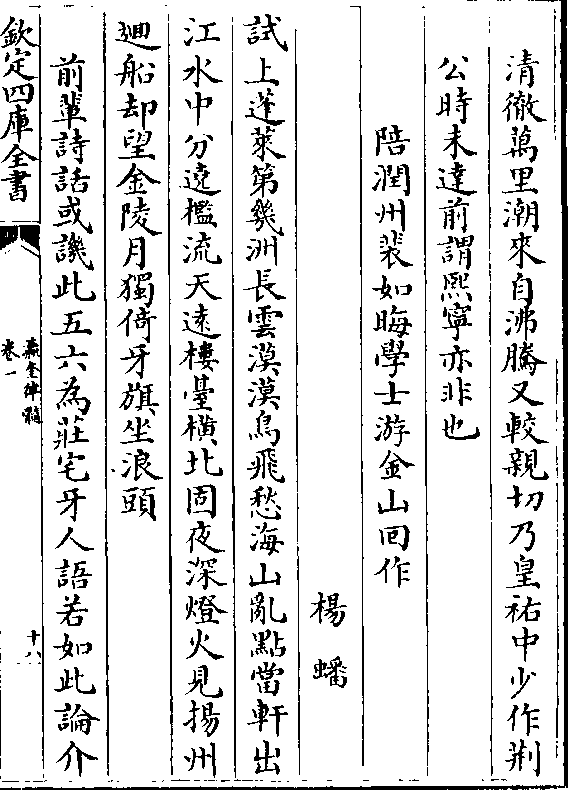 清徹萬里潮來自沸騰又較親切乃皇祐中少作荆
公時未達前謂熙寧亦非也
陪潤州裴如晦學士游金山回作
楊蟠
試上蓬萊第幾洲長雲漠漠鳥飛愁海山亂點當軒出
江水中分遶檻流天遠樓臺橫北固夜深燈火見揚州
廻船却望金陵月獨倚牙旗坐浪頭
前輩詩話或譏此五六為莊宅牙人語若如此論介
欽定四庫全書
瀛奎律髓
卷一
十八